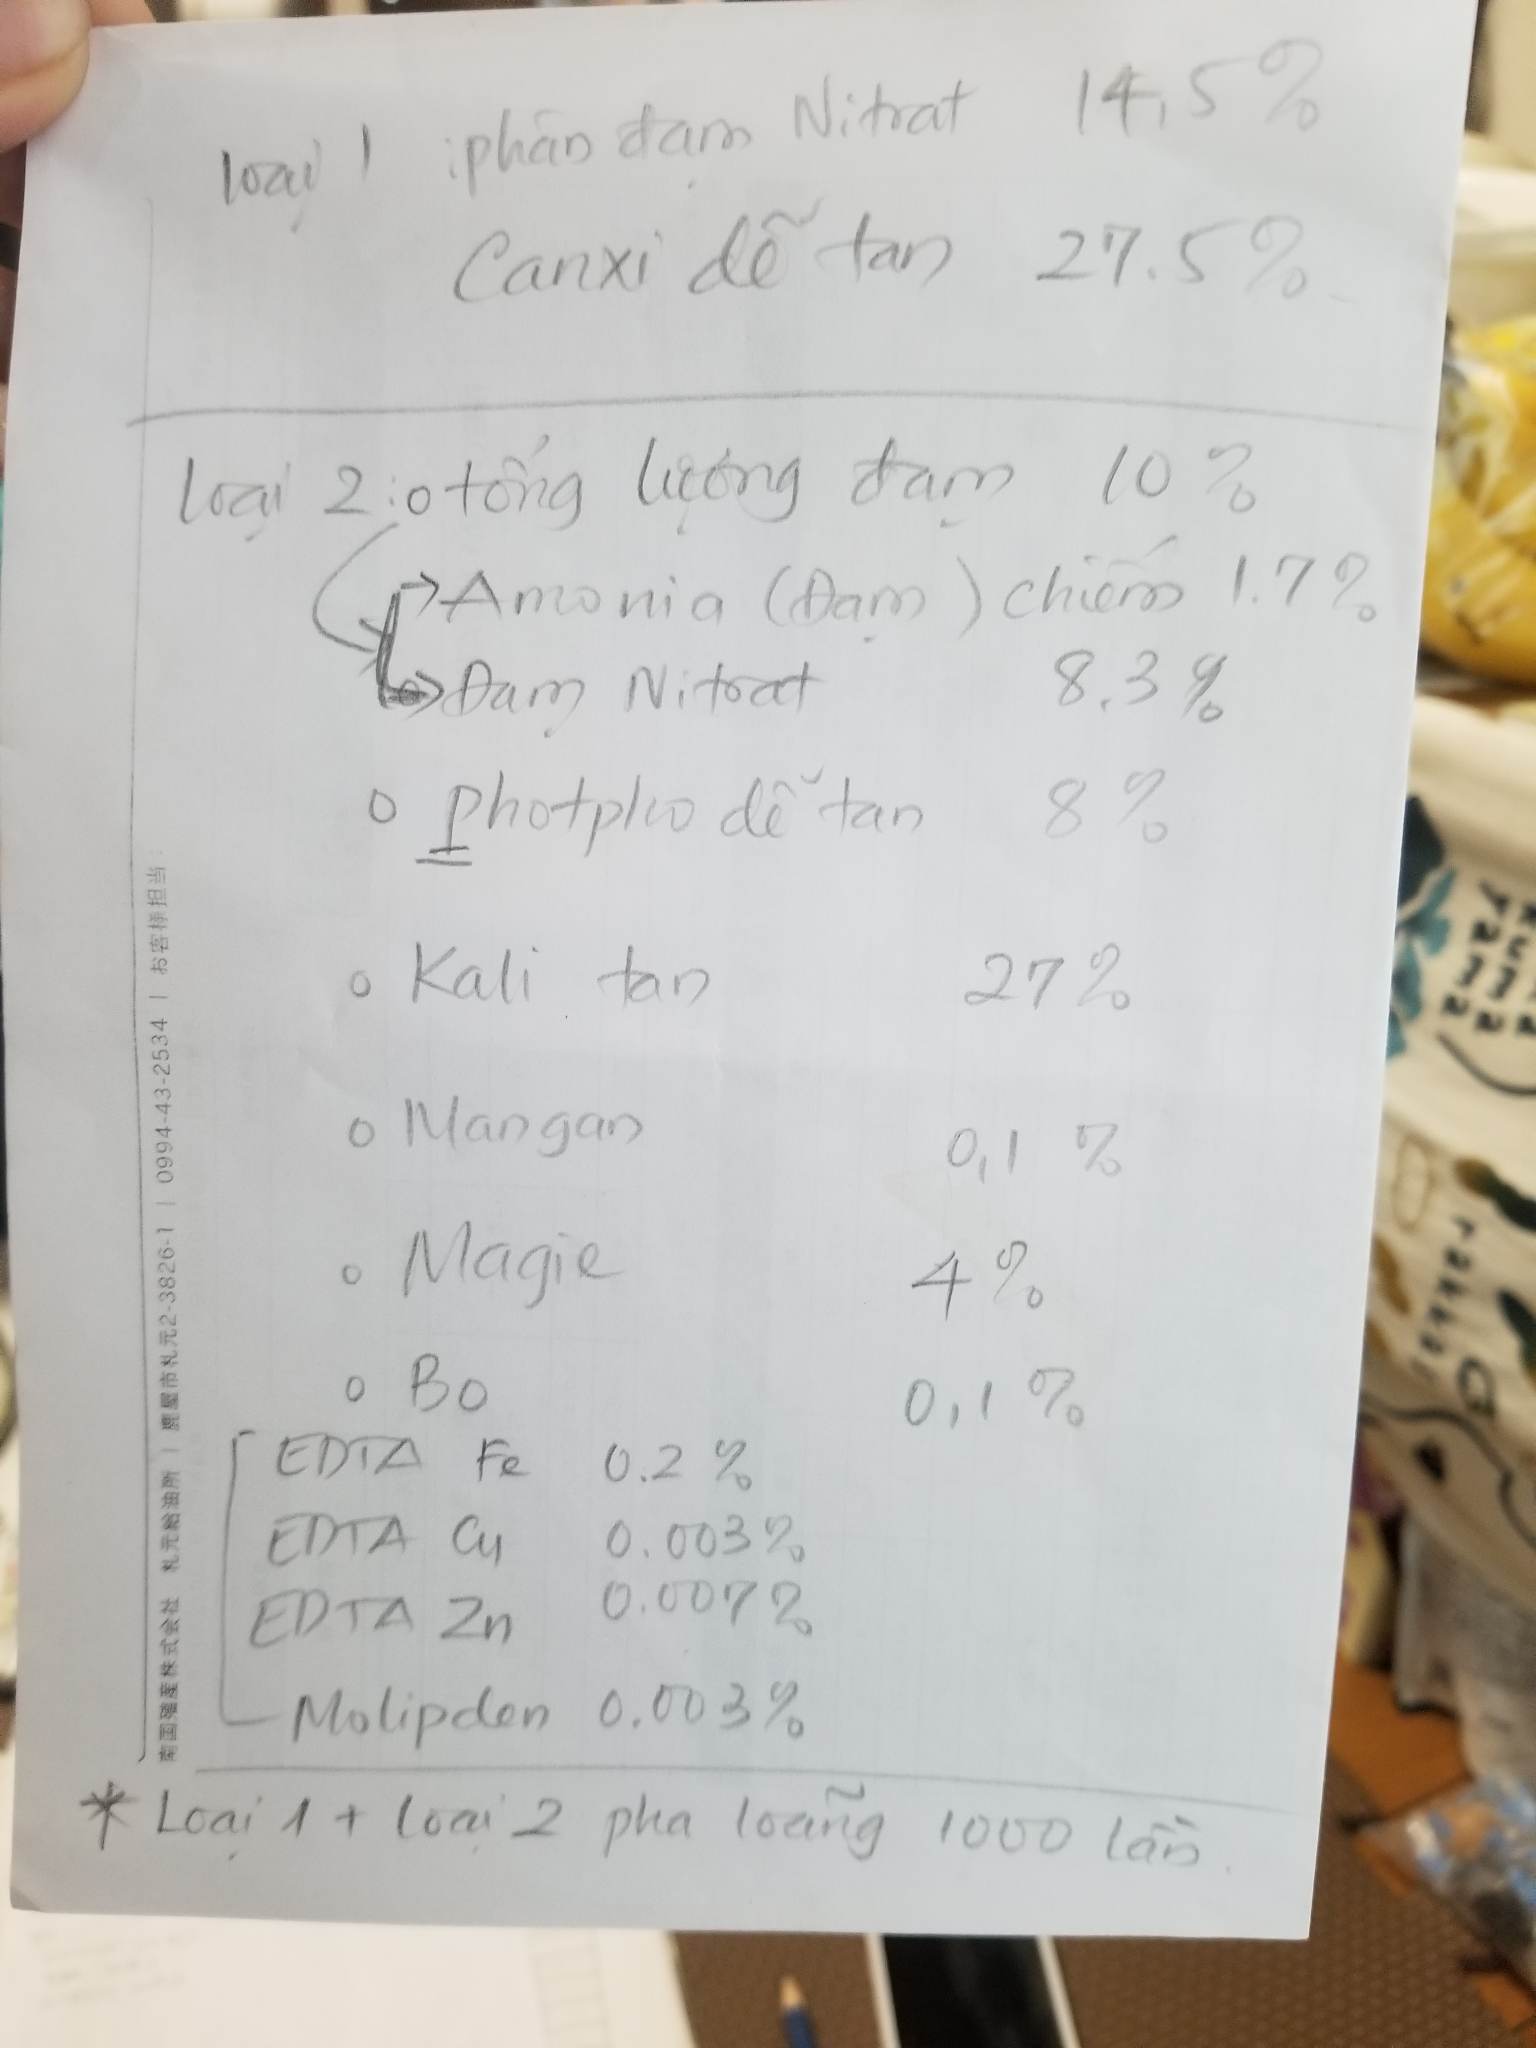 loại 1 : phân đạm Nitrat 14,5%
Canxi dễ tan 27.5%
loại 2 : o tổng lượng đạm 10%
→ Amonia (Đạm) chiếm 1.7%
→ Đạm Nitrat 8.3%
o photpho dễ tan 8%
o Kali tan 27%
o Mangan 0,1 %
o Magie 4%
o Bo 0,1%
EDTA Fe 0.2%
EDTA Cu 0.003%
EDTA Zn 0.007%
Molipden 0.003%
* Loại 1 + loại 2 pha loãng 1000 lần.
南国殖産株式会社 札元給油所 | 鹿屋市札元2-3826-1 | 0994-43-2534 | お客様担当: